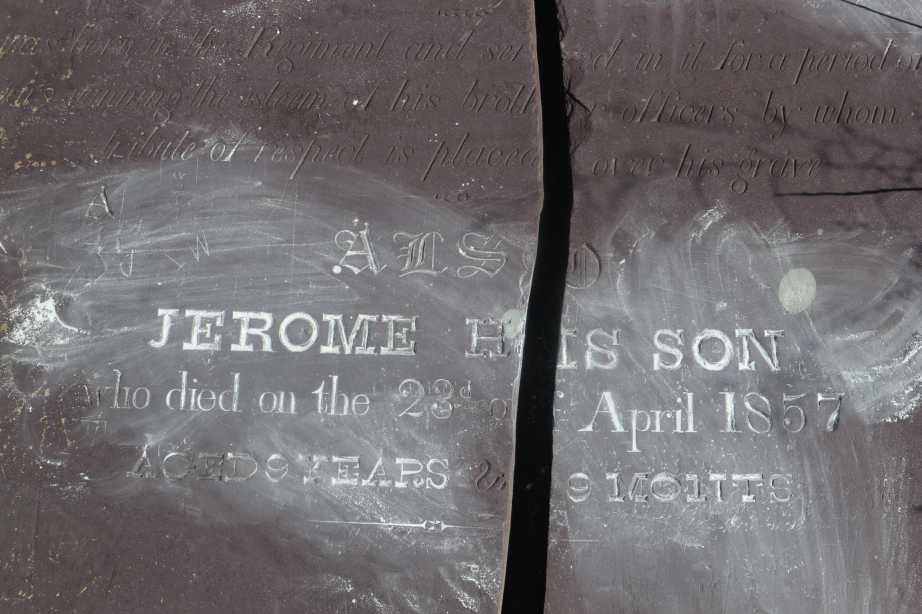 was born in the Regiment and served in it for a period of
winning the esteem of his brother officers by whom
tribute of respect is placed over his grave
ALSO
JEROME HIS SON
who died on the 23d of April 1857
AGED 9 YEARS & 9 MONTS